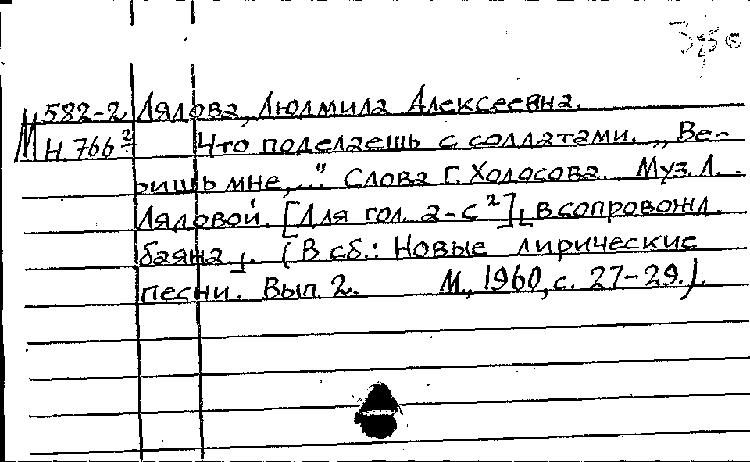 М 582-2 Лядова, Людмила Алексеевна.
Н 766² Что поделаешь с солдатами. „Ве-
ришь мне,..." Слова Г. Холосова. Муз. Л.
Лядовой. [Для гол. a-c²], [в сопровожд.
баяна]. (В сб.: Новые лирические
песни. Вып. 2. М., 1960, с. 27-29.).